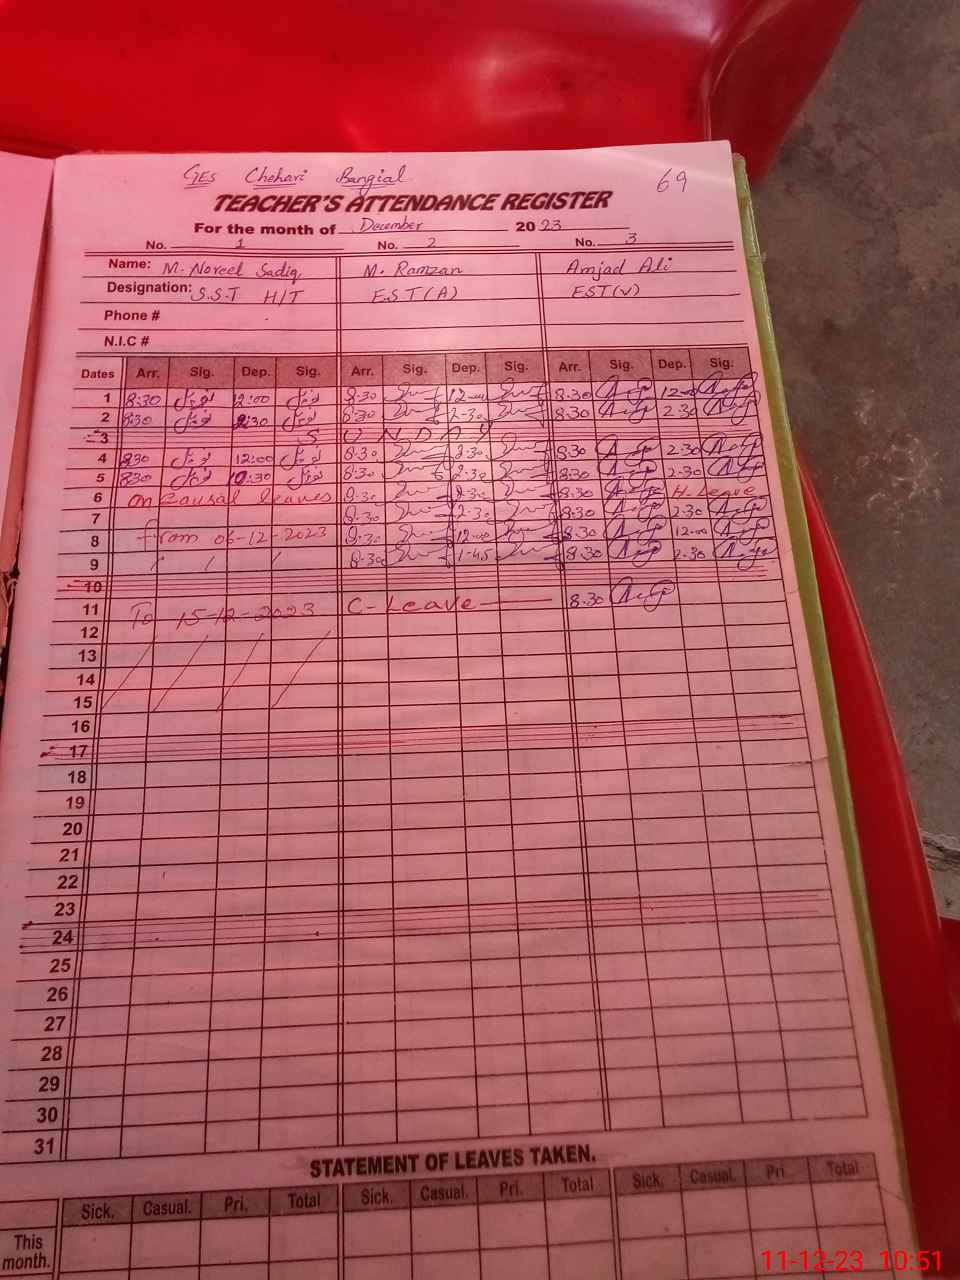 GES Chehari Bangial 69
TEACHER'S ATTENDANCE REGISTER
For the month of December 2023
No. 1 No. 2 No. 3
Name: M. Noreel Sadiq M. Ramzan Amjad Ali
Designation: S.S.T H/T E.S.T(A) EST(V)
Phone #
N.I.C #
Dates Arr. Sig. Dep. Sig. Arr. Sig. Dep. Sig. Arr. Sig. Dep. Sig.
1 8:30 12:00 8.30 12-00 8.30 12-00
2 8:30 2:30 8:30 2-30 8.30 2.30
3 SUNDAY
4 8:30 12:00 8.30 2.30 8.30 2.30
5 8:30 8.30 2.30 8.30 2.30
6 on causal leaves 8.30 2.30 8.30 H. Leave
7 8.30 2.30 8.30 2.30
8 from 06-12-2023 8.30 12.00 8.30 12-00
9 8.30 1-45 8.30 2.30
10
11 To 15-12-2023 C-Leave 8.30
12
13
14
15
16
17
18
19
20
21
22
23
24
25
26
27
28
29
30
31
STATEMENT OF LEAVES TAKEN.
Sick. Casual. Pri. Total Sick. Casual. Pri. Total Sick. Casual. Pri. Total
This month.
11-12-23 10:51